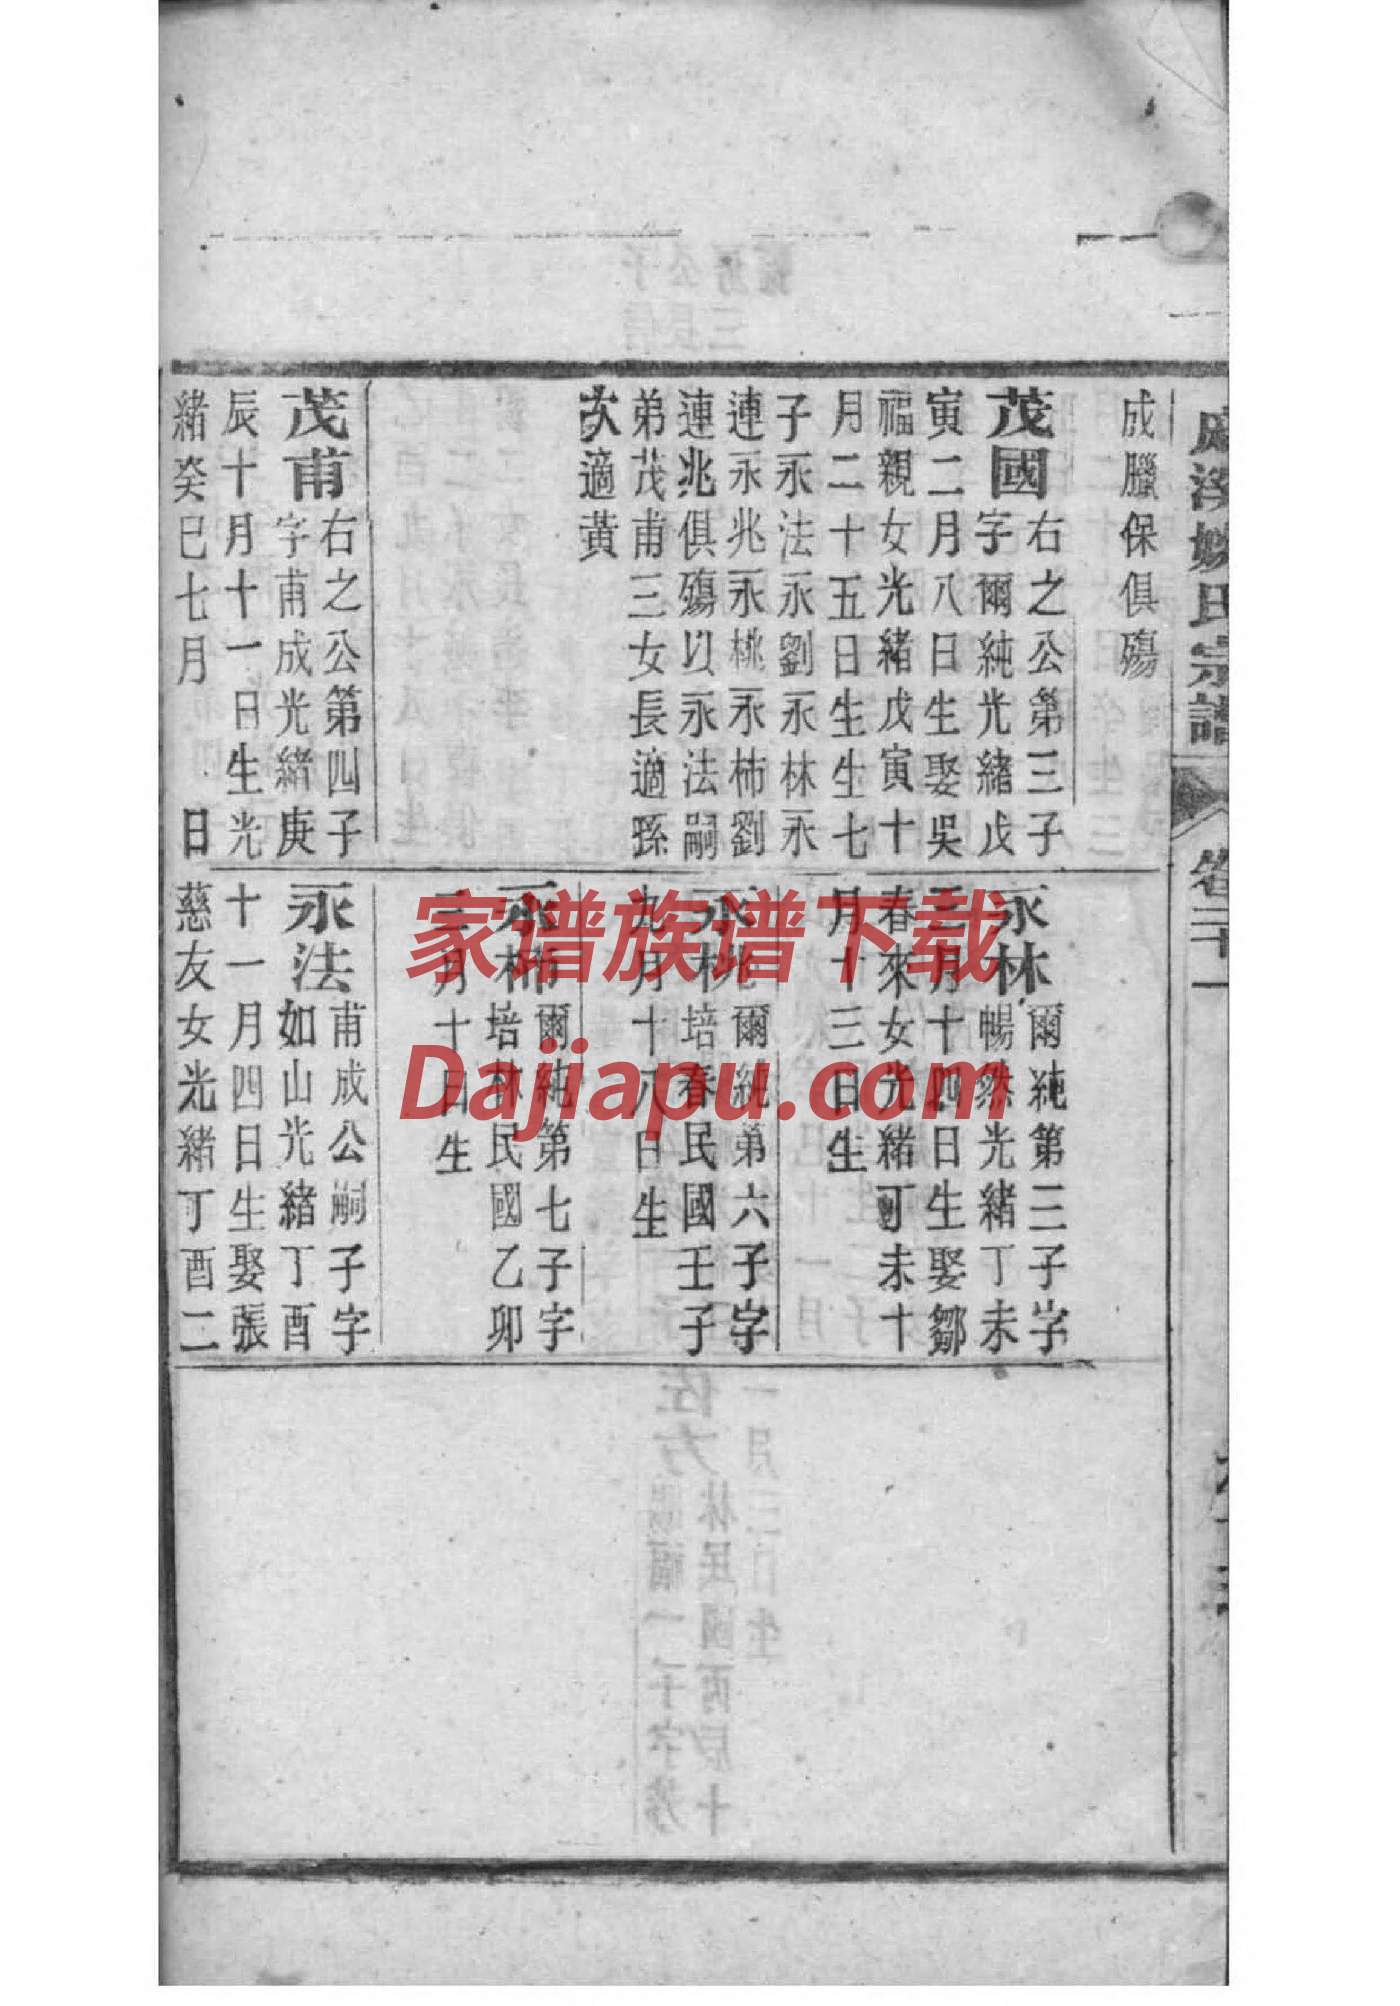 氏宗譜
成臘保俱殤
茂國
右之公第三子
字爾純光緒戊
寅二月八日生娶吳
福親女光緒戊寅十
月二十五日生生七
子永法永劉永林永
連永兆永桃永柿劉
連兆俱殤以永法嗣
弟茂甫三女長適孫
次適黃
茂甫
右之公第四子
字甫成光緒庚
辰十月十一日生光
緒癸巳七月　　日
永林
爾純第三子字
暢然光緒丁未
三月十四日生娶鄒
春來女光緒丁未十
月十三日生
永桃
爾純第六子字
培春民國壬子
九月十八日生
永柿
爾純第七子字
培林民國乙卯
三月十日生
永法
甫成公嗣子字
如山光緒丁酉
十一月四日生娶張
慈友女光緒丁酉二
家谱族谱下载
Dajiapu.com